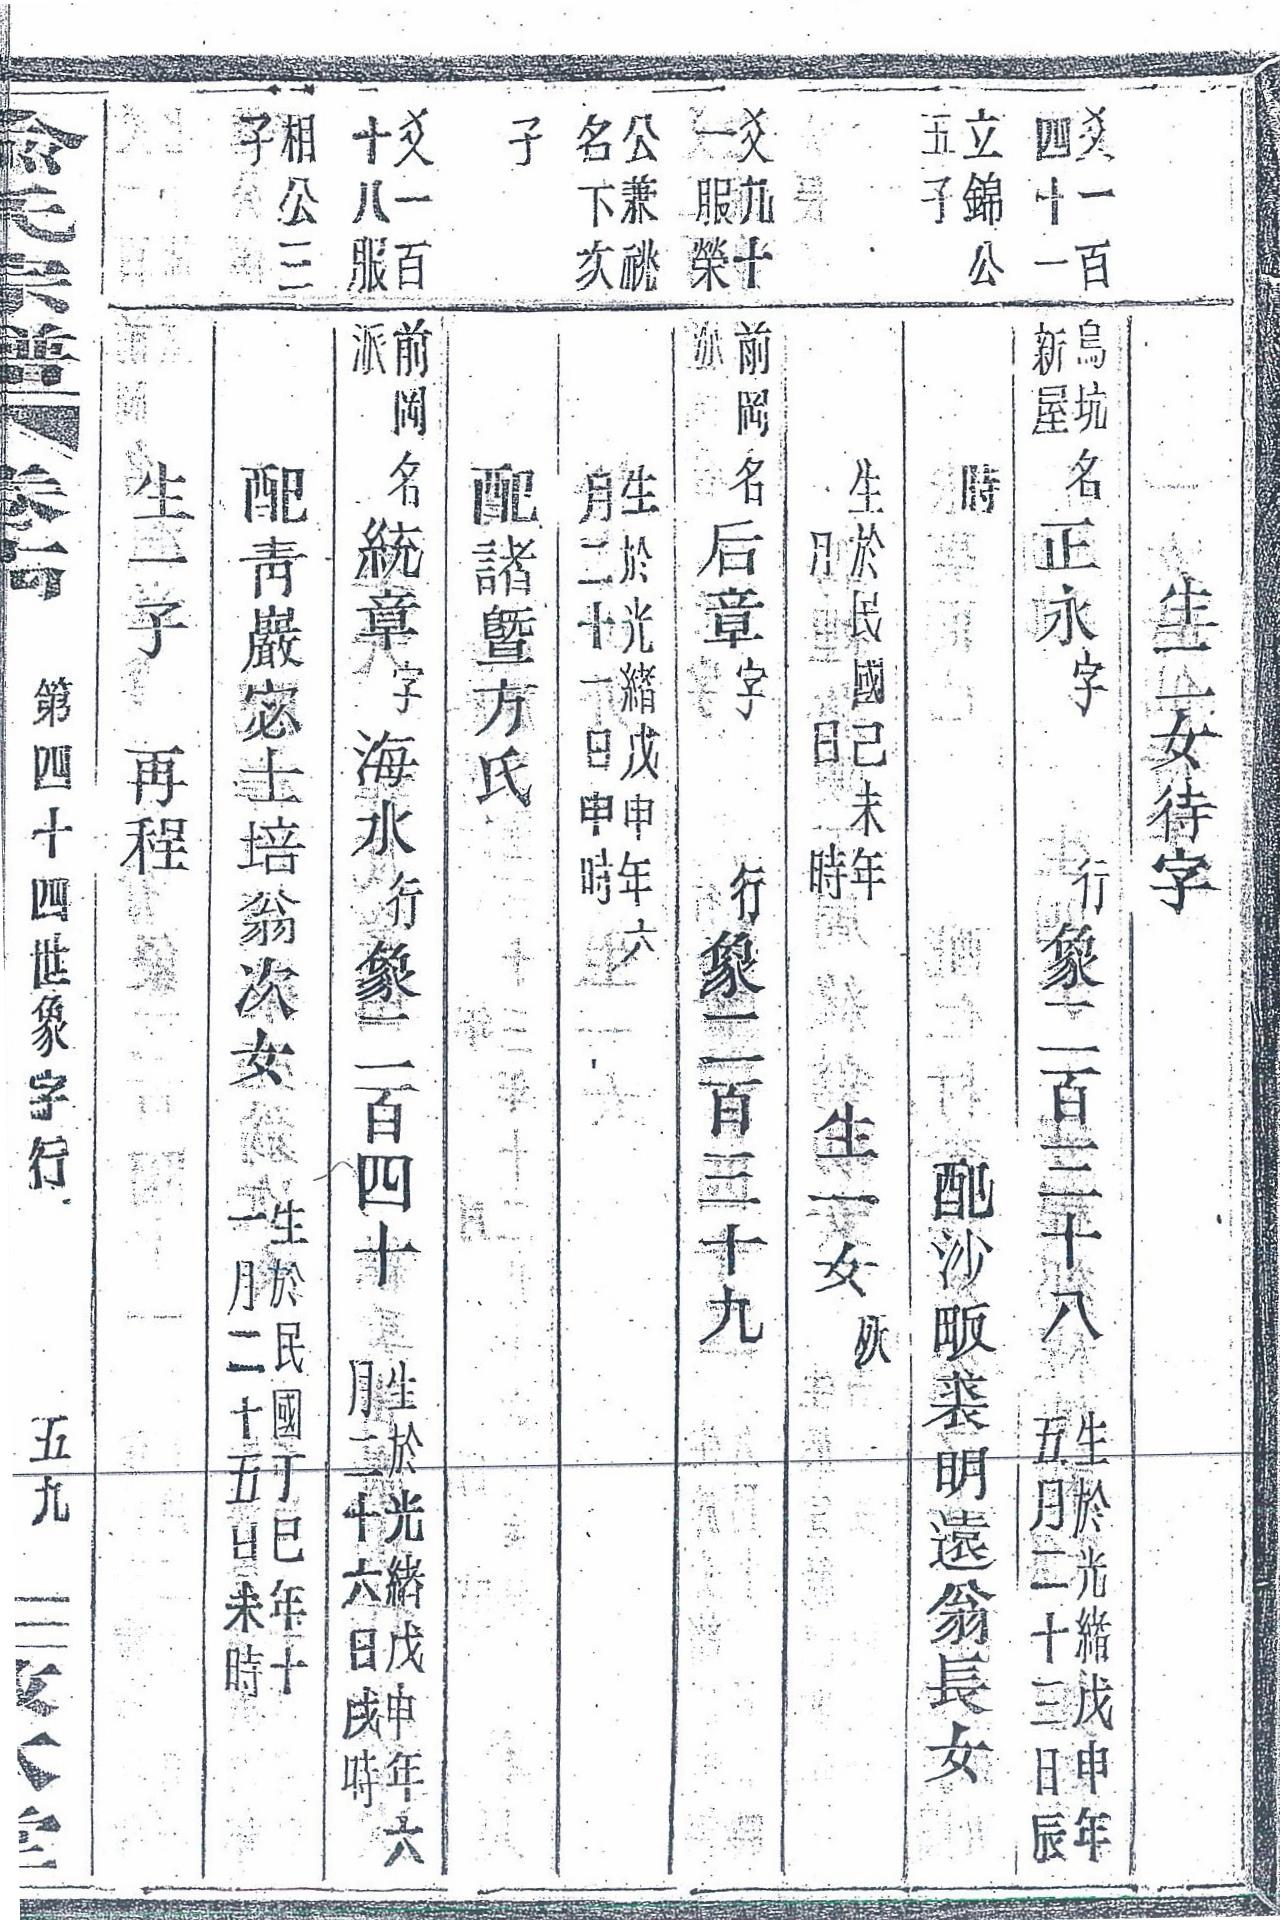 生一女待字
爻一百四十一
立錦公五子
烏坑新屋名正永字
行象一二百三十八
生於光緒戊申年五月二十三日辰
時
配沙畈裘明遠翁長女
生於民國己未年
月
日
時
生一女
爻九十一服榮
公兼祧名下次
子
前岡派名后章字
行象一二百三十九
生於光緒戊申年六月二十一日申時
配諸暨方氏
爻一百十八服
相公三子
前岡派名統章字海水行象一二百四十
生於光緒戊申年六月二十六日戌時
配青巖宓士培翁次女
生於民國丁巳年十一月二十五日未時
生一子
再程
俞氏宗譜
卷
第四十四世象字行
五九